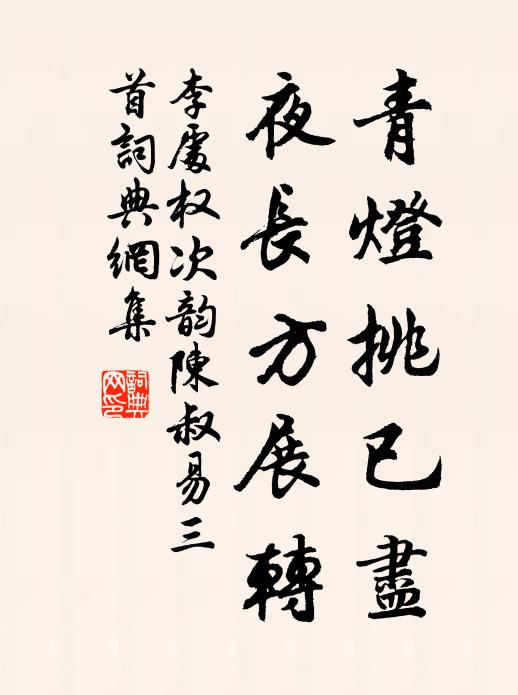 青燈挑已盡
夜長方展轉
李處权次韵陳叔易三
首詞典網集
詞典
网印